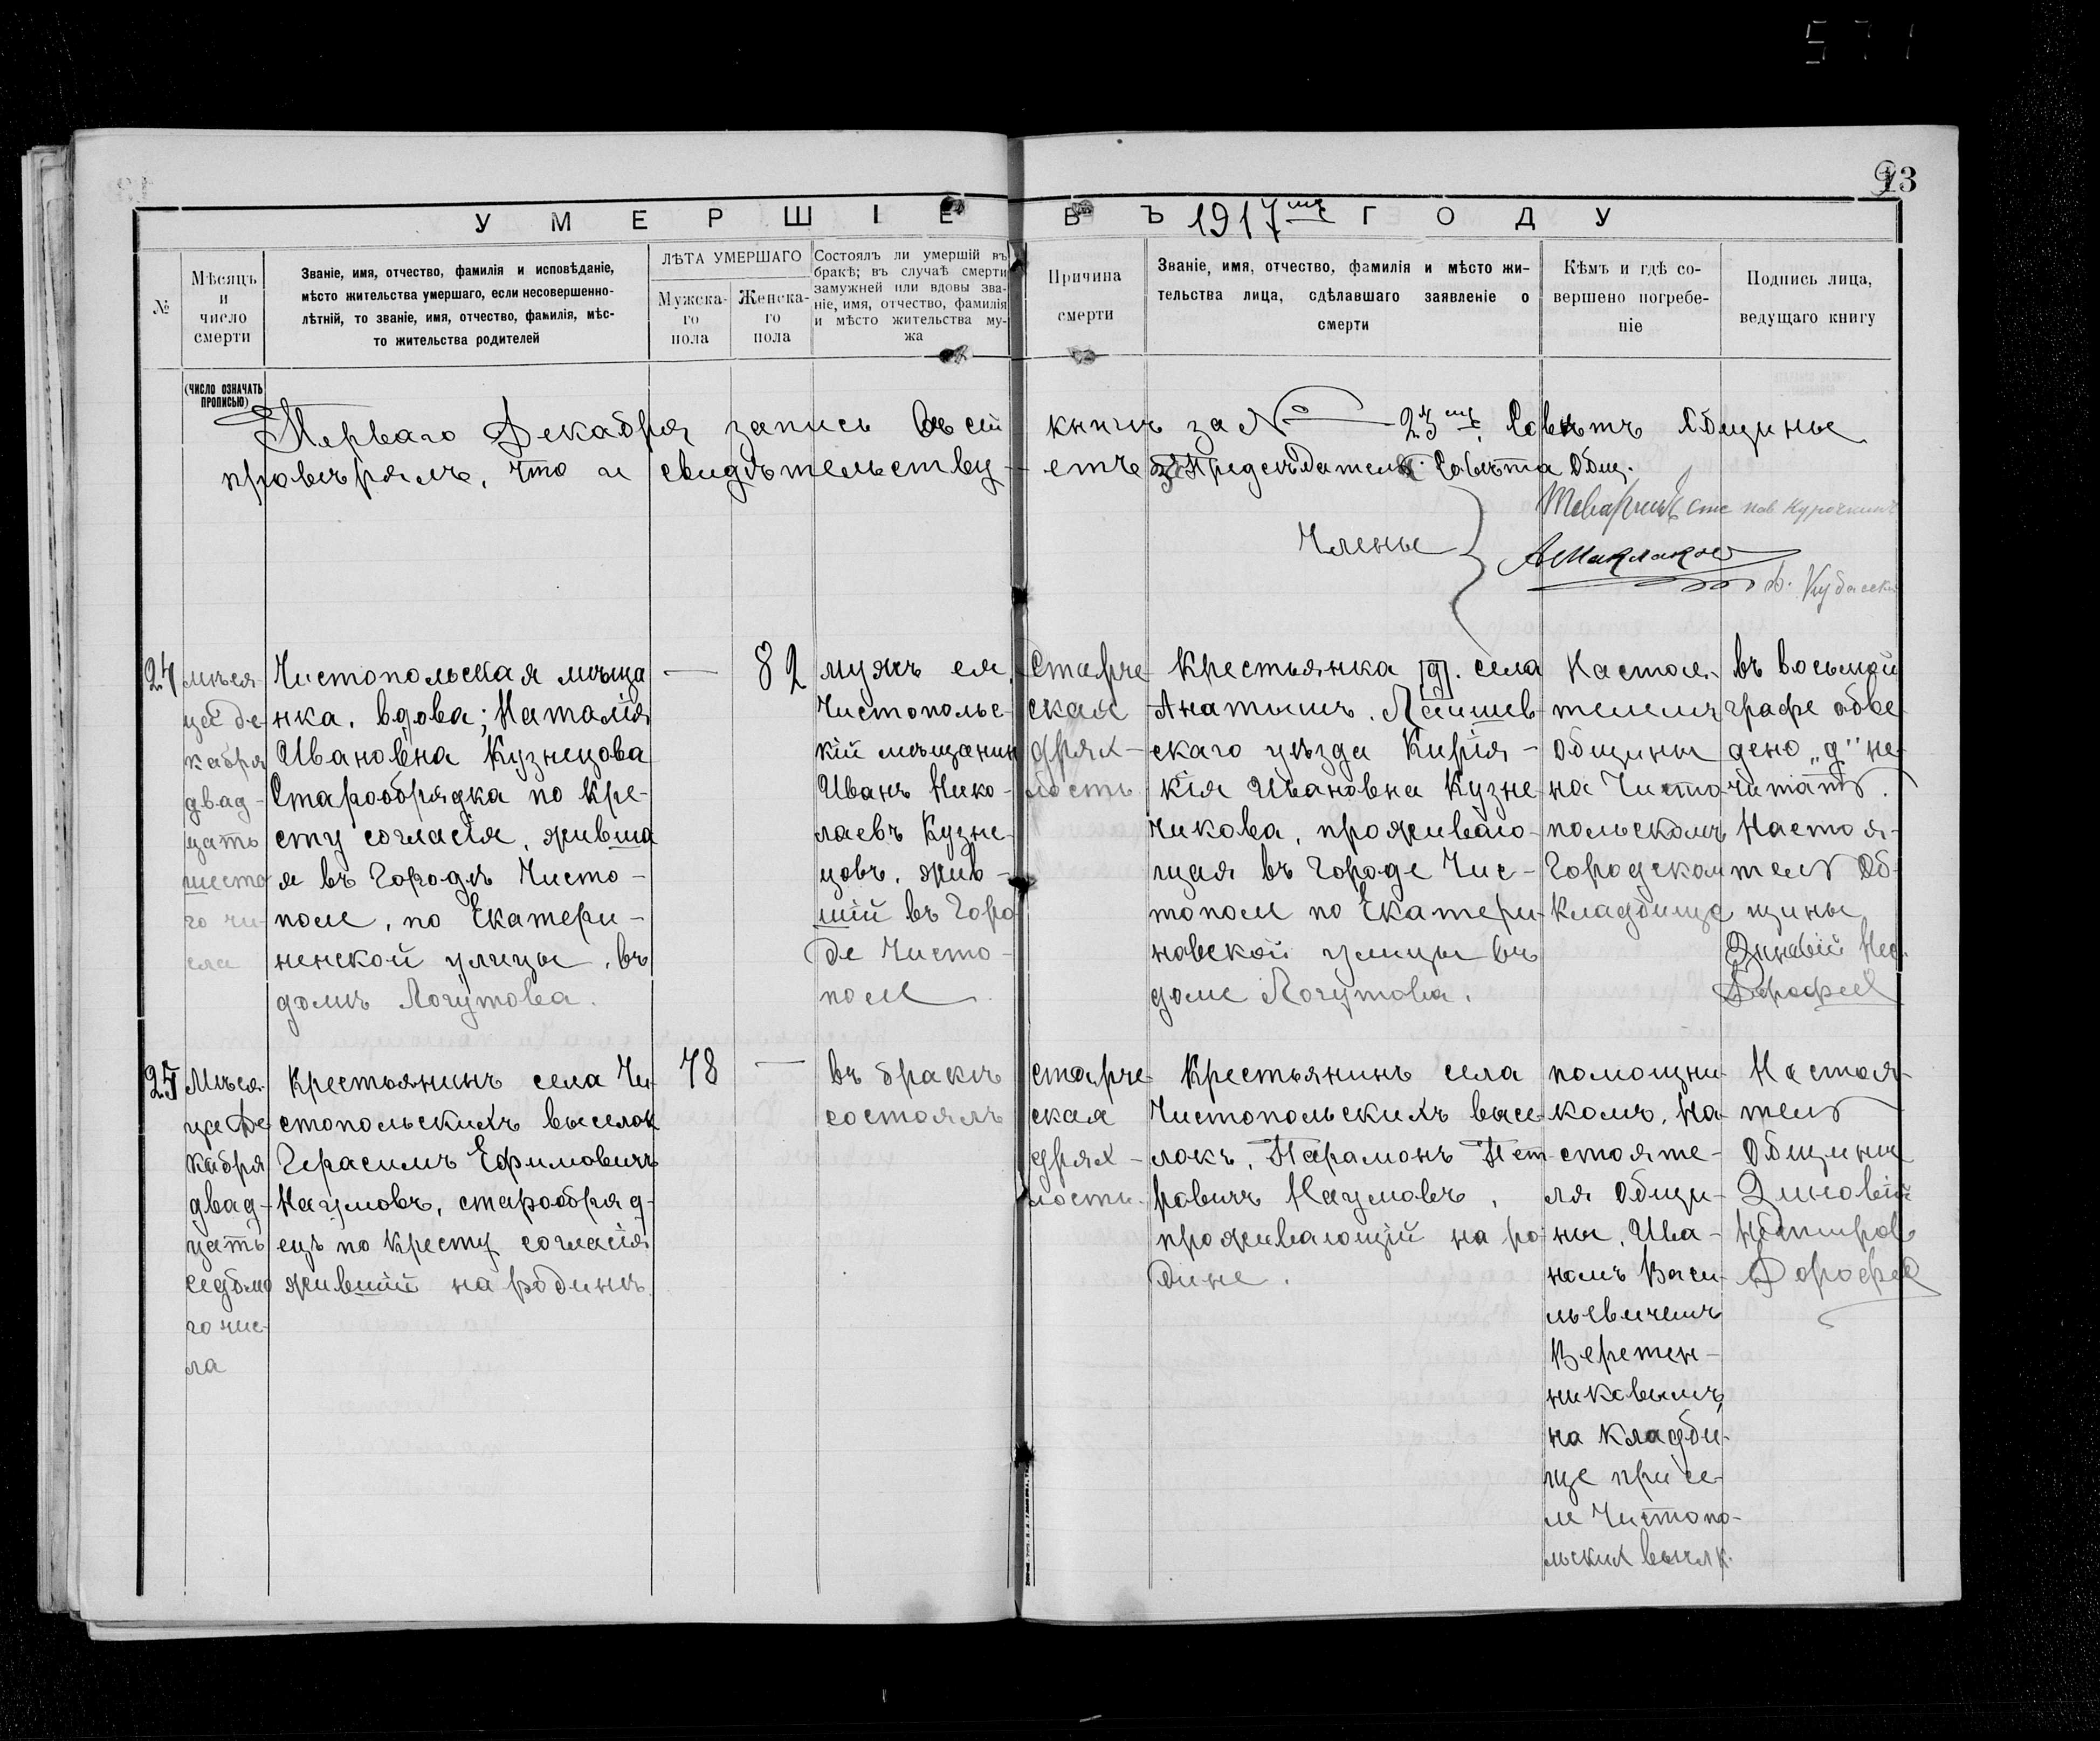 571
93
УМЕРШІЕ ВЪ 1917мъ ГОДУ
№
Мѣсяцъ
и
число
смерти
Званіе, имя, отчество, фамилія и исповѣданіе,
мѣсто жительства умершаго, если несовершенно-
лѣтній, то званіе, имя, отчество, фамилія, мѣс-
то жительства родителей
ЛѢТА УМЕРШАГО
Мужска-
го
пола
Женска-
го
пола
Состоялъ ли умершій въ
бракѣ; въ случаѣ смерти
замужней или вдовы зва-
ніе, имя, отчество, фамилія
и мѣсто жительства му-
жа
Причина
смерти
Званіе, имя, отчество, фамилія и мѣсто жи-
тельства лица, сдѣлавшаго заявленіе о
смерти
Кѣмъ и гдѣ со-
вершено погребе-
ніе
Подпись лица,
ведущаго книгу
(ЧИСЛО ОЗНАЧАТЬ
ПРОПИСЬЮ)
Перваго Декабря запись въ сій книгѣ за № 23мъ. Совѣтъ Общины
провѣрялъ, что и свидѣтельству-етъ За Председатель Совѣта Общ.
Товарищъ Курочкинъ
Члены
АМаклаков
Кубасскі
24
мѣся-
ца де-
кабря
двад-
цать
шесто
го чи-
сла
Чистопольская мѣща
нка. вдова; Наталія
Ивановна Кузнецова
Старообрядка по Кре-
сту согласія, живша
я въ Городѣ Чисто-
поле, по Екатери-
ненской улицы, въ
домѣ Логутова.
—
82
мужъ ея
Чистопольс-
кій мѣщанин
Иванъ Нико-
лаевъ Кузне-
цовъ, жив-
шій въ Горо-
де Чисто-
поле
Старче
ская
дрях-
лость
Крестьянка д. села
Анатышъ. Лаишев
скаго уѣзда Кирія-
кія Ивановна Кузне
чикова, проживаю-
щая въ Городе Чис-
тополе по Екатери-
новской улицы въ
доме Логутова.
Настоя-
телемъ
Общины
на Чисто
польскомъ
Городском
Кладбище
въ восьмой
графе обве
дено „д" не
читать.
Настоя-
тель Об-
щины
Зиновій Нес.
Дорофеев
25
Мѣся-
ца Де
кабря
двад-
цать
седьмо
го чис-
ла
Крестьянинъ села Чи-
стопольскихъ выселок
Герасимъ Ефимовичъ
Наумовъ, старообряд-
ецъ по Кресту согласія
живший на родинѣ.
78
—
въ бракѣ
состоялъ
старче
ская
дрях-
лость.
Крестьянинъ села
Чистопольскихъ высе-
локъ, Парамонъ Пет-
ровичъ Наумовъ,
проживающій на ро-
дине.
помощни-
комъ. На-
стояте-
ля Общи-
ны, Ива-
номъ Васи-
льевичемъ
Веретен-
никовымъ,
на кладби-
ще при се-
ле Чистопо-
льских
Настоя-
тель
Общины
Зиновій
Дорофеев